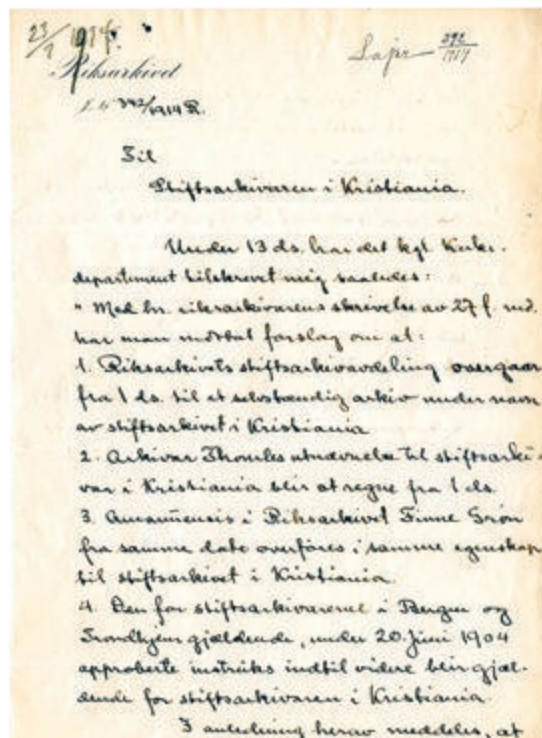 23/7 1914.
Sajr 392/1914
Riksarkivet
J. nr 392/1914 R.
Til
Stiftsarkivaren i Kristiania.
Under 13 ds. har det kgl. Kirke-
departement tilskrevet mig saaledes:
"Med hr. riksarkivarens skrivelse av 27 f. md.
har man mottat forslag om at:
1. Riksarkivets stiftsarkivavdeling overgaar
fra 1 ds. til et selvstændig arkiv under navn
av stiftsarkivet i Kristiania
2. Arkivar Thomles utnævnelse til stiftsarki-
var i Kristiania blir at regne fra 1 ds.
3. Amanuensis i Riksarkivet Finne Grøn
fra samme dato overføres i samme egenskap
til stiftsarkivet i Kristiania.
4. Den for stiftsarkivarerne i Bergen og
Trondhjem gjældende, under 20 juni 1904
approberte instruks indtil videre blir gjæl-
dende for stiftsarkivaren i Kristiania.
I anledning herav meddeles, at